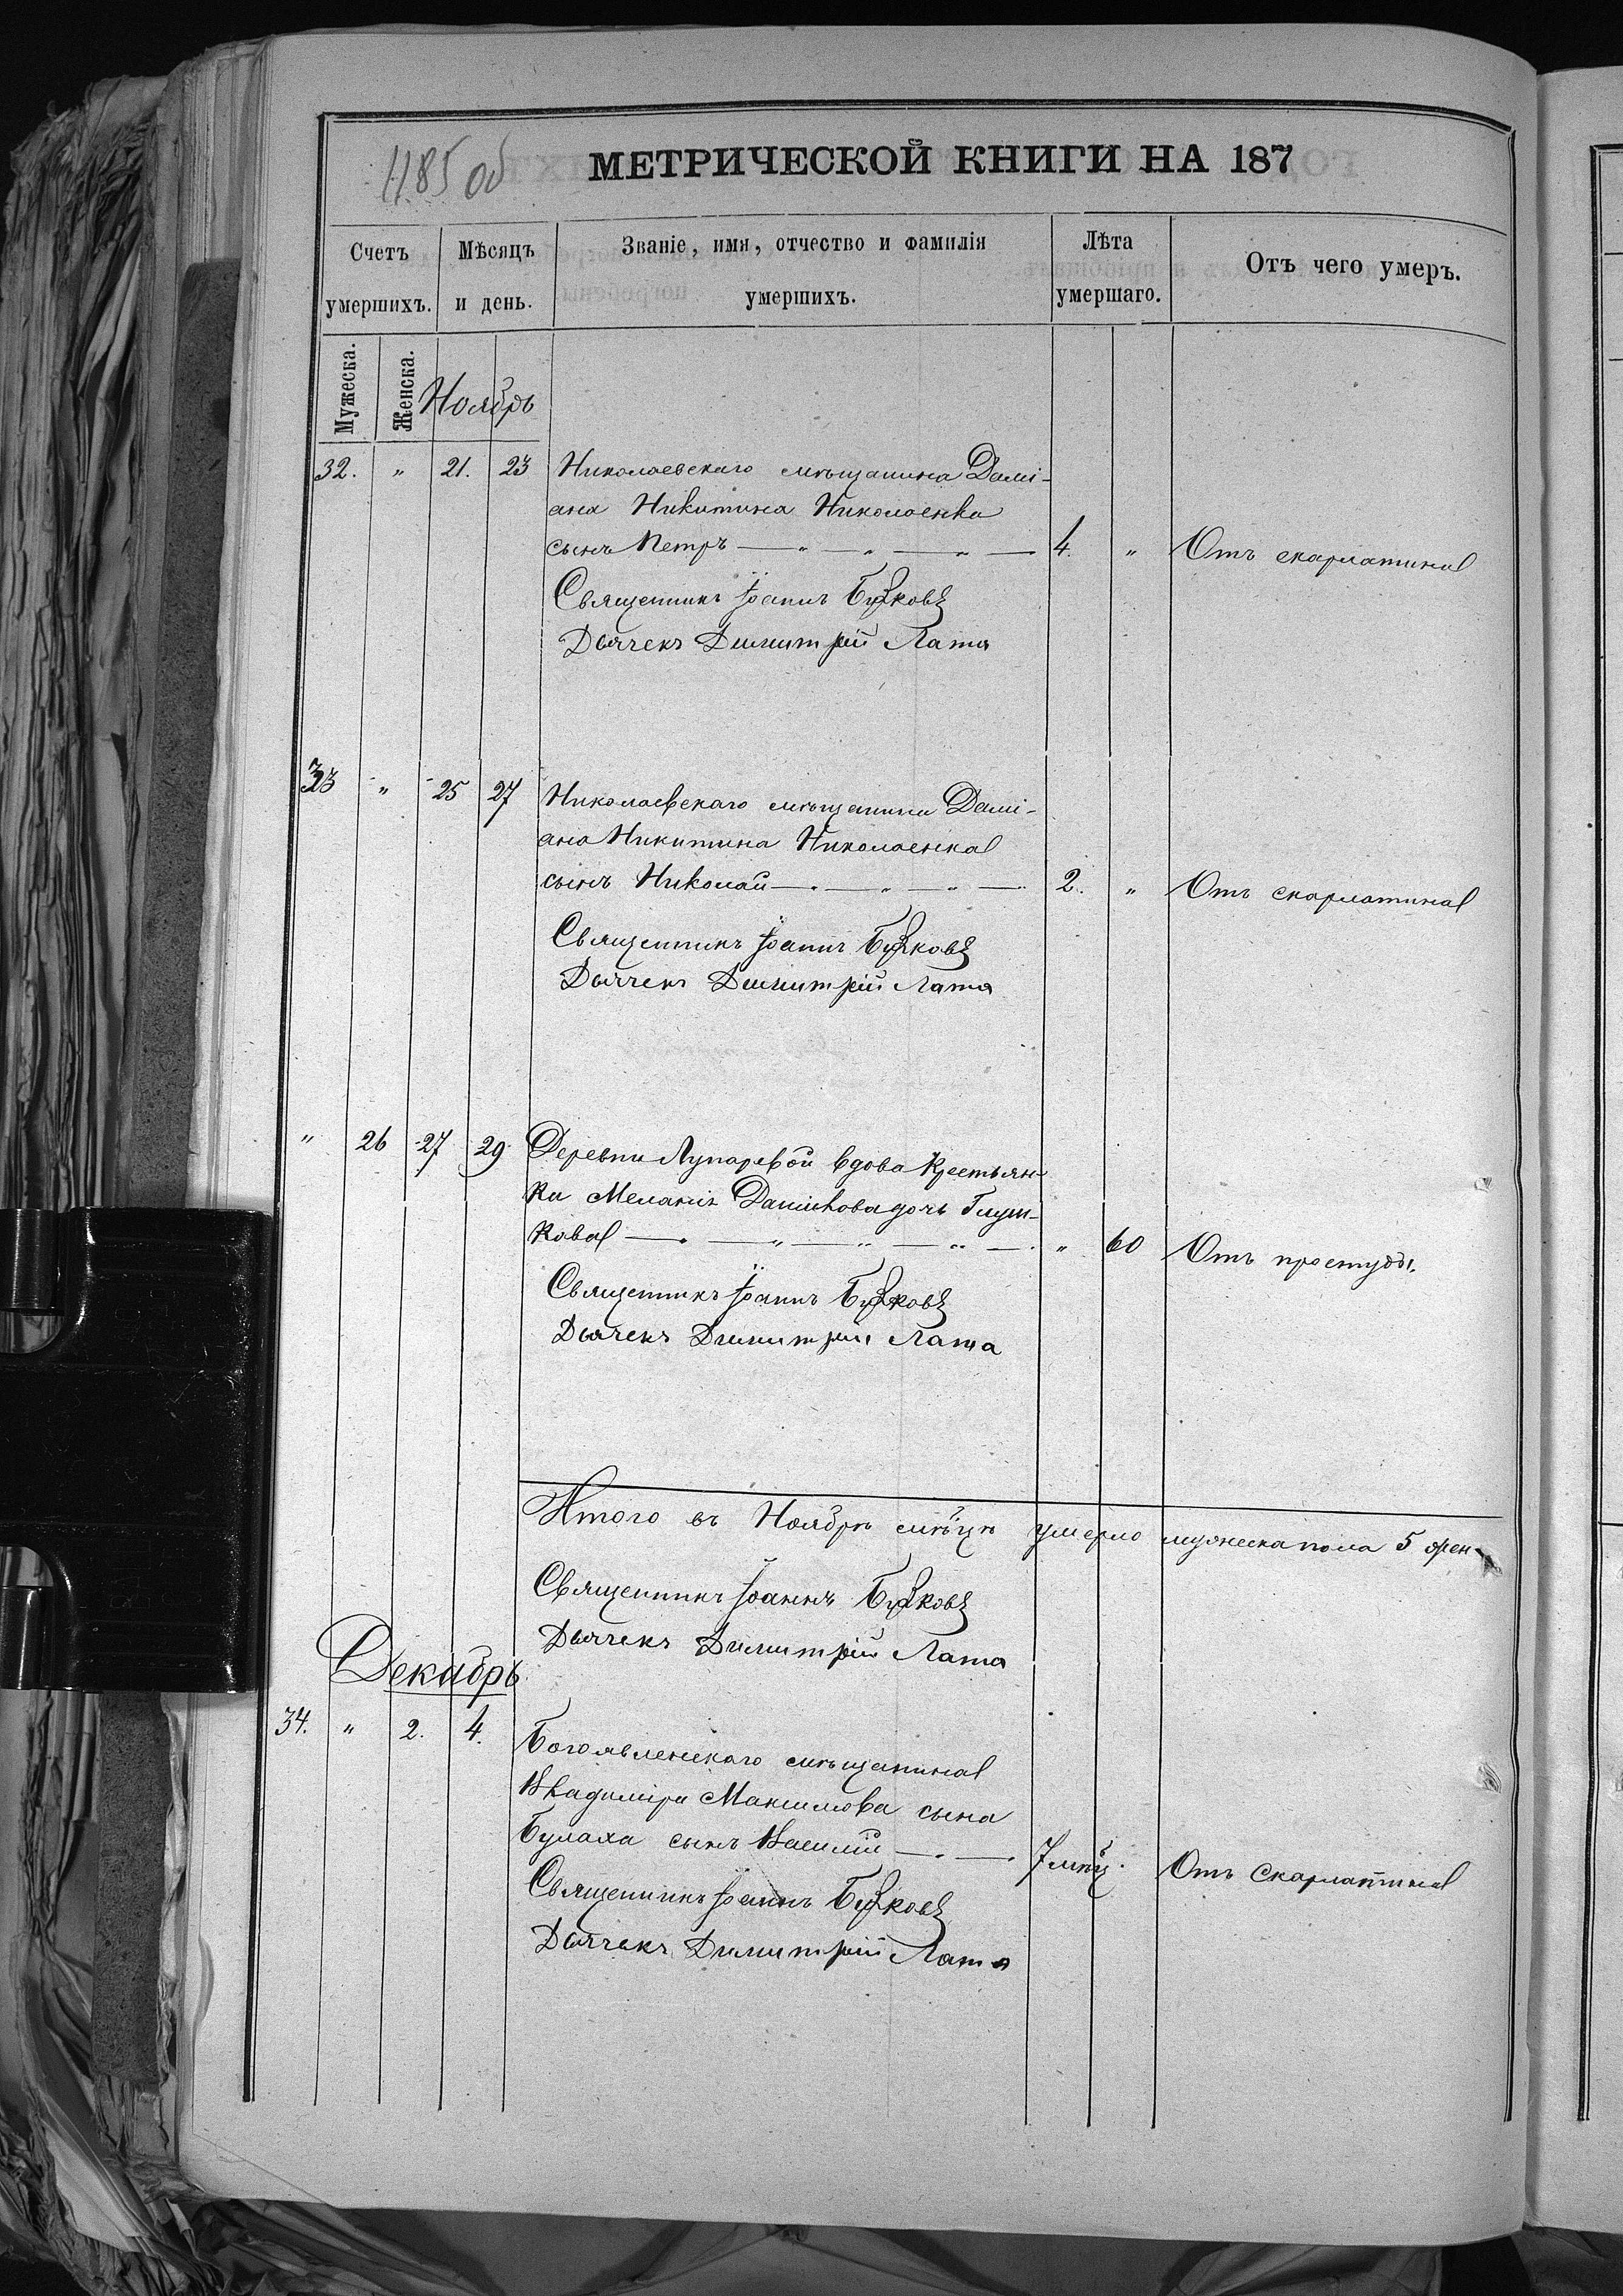 1185 об
МЕТРИЧЕСКОЙ КНИГИ НА 187
Счетъ умершихъ.
Мѣсяцъ и день.
Званіе, имя, отчество и фамилія умершихъ.
Лѣта умершаго.
Отъ чего умеръ.
Мужеска.
Женска.
Ноябрь
32. " 21. 23 Николаевскаго мѣщанина Дамі-
ана Никитина Николаенка
сынъ Петръ 4. " Отъ скарлатины
Священникъ Іоаннъ
Дьячекъ Димитрій Лата
33 " 25 27 Николаевскаго мѣщанина Дамі-
ана Никитина Николаенка
сынъ Николай 2. " Отъ скарлатины
Священникъ Іоаннъ
Дьячекъ Димитрій Лата
" 26 27 29 Деревни Лупаревой вдова крестьян-
ка Меланія дочь
кова " 60 Отъ простуды.
Священникъ Іоаннъ
Дьячекъ Димитрій Лата
Итого въ Ноябрѣ мѣцѣ умерло мужеска пола 5 жен-
Священникъ Іоаннъ
Дьячекъ Димитрій Лата
Декабрь
34. " 2. 4. Богоявленскаго мѣщанина
Владиміра Максимова сына
Булаха сынъ Василій 7 мѣц. Отъ Скарлатины
Священникъ Іоаннъ
Дьячекъ Димитрій Лата